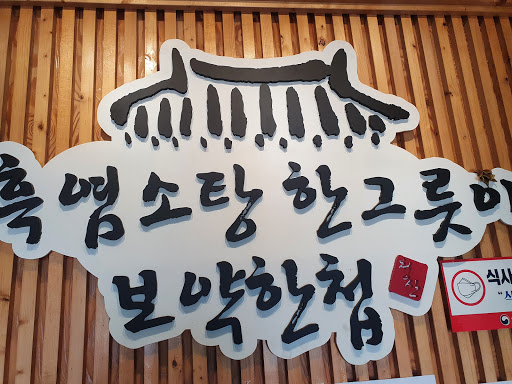 흑염소탕 한그릇이
보약한첩
식사